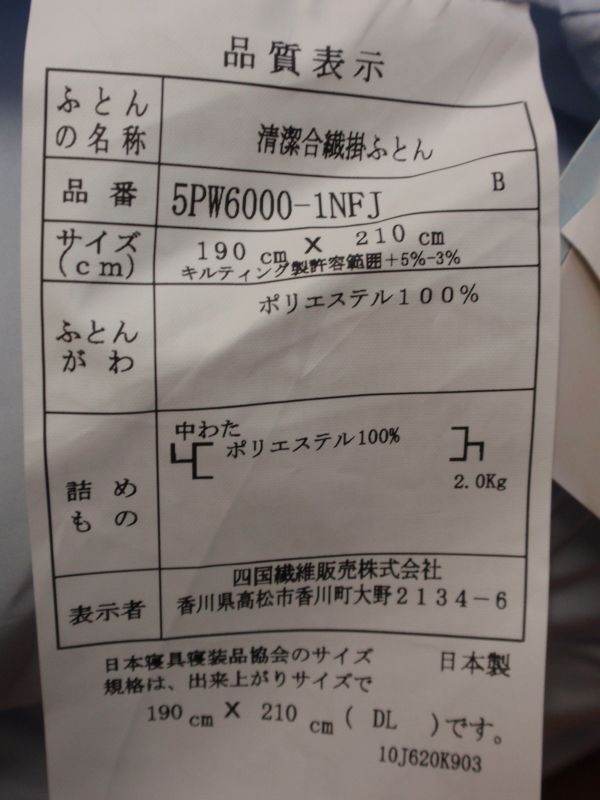 品質表示
ふとん
の名称
清潔合繊掛ふとん
品番
5PW6000-1NFJ
B
サイズ
(cm)
190 cm X 210 cm
キルティング製許容範囲+5%-3%
ふとん
がわ
ポリエステル100%
詰め
もの
中わた
ポリエステル100%
2.0Kg
表示者
四国繊維販売株式会社
香川県高松市香川町大野2134-6
日本寝具寝装品協会のサイズ
規格は、出来上がりサイズで
日本製
190 cm X 210 cm ( DL )です。
10J620K903